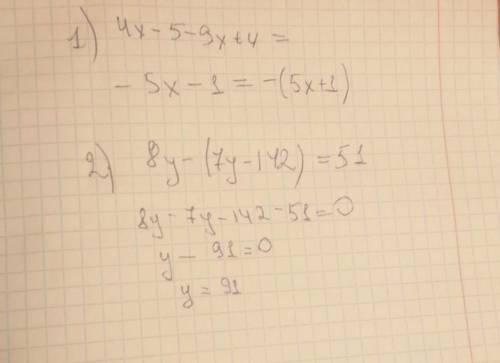 1) 4x - 5 - 9x + 4 =
- 5x - 1 = -(5x+1)
2) 8y - (7y - 142) = 51
8y - 7y - 142 - 51 = 0
y - 91 = 0
y = 91